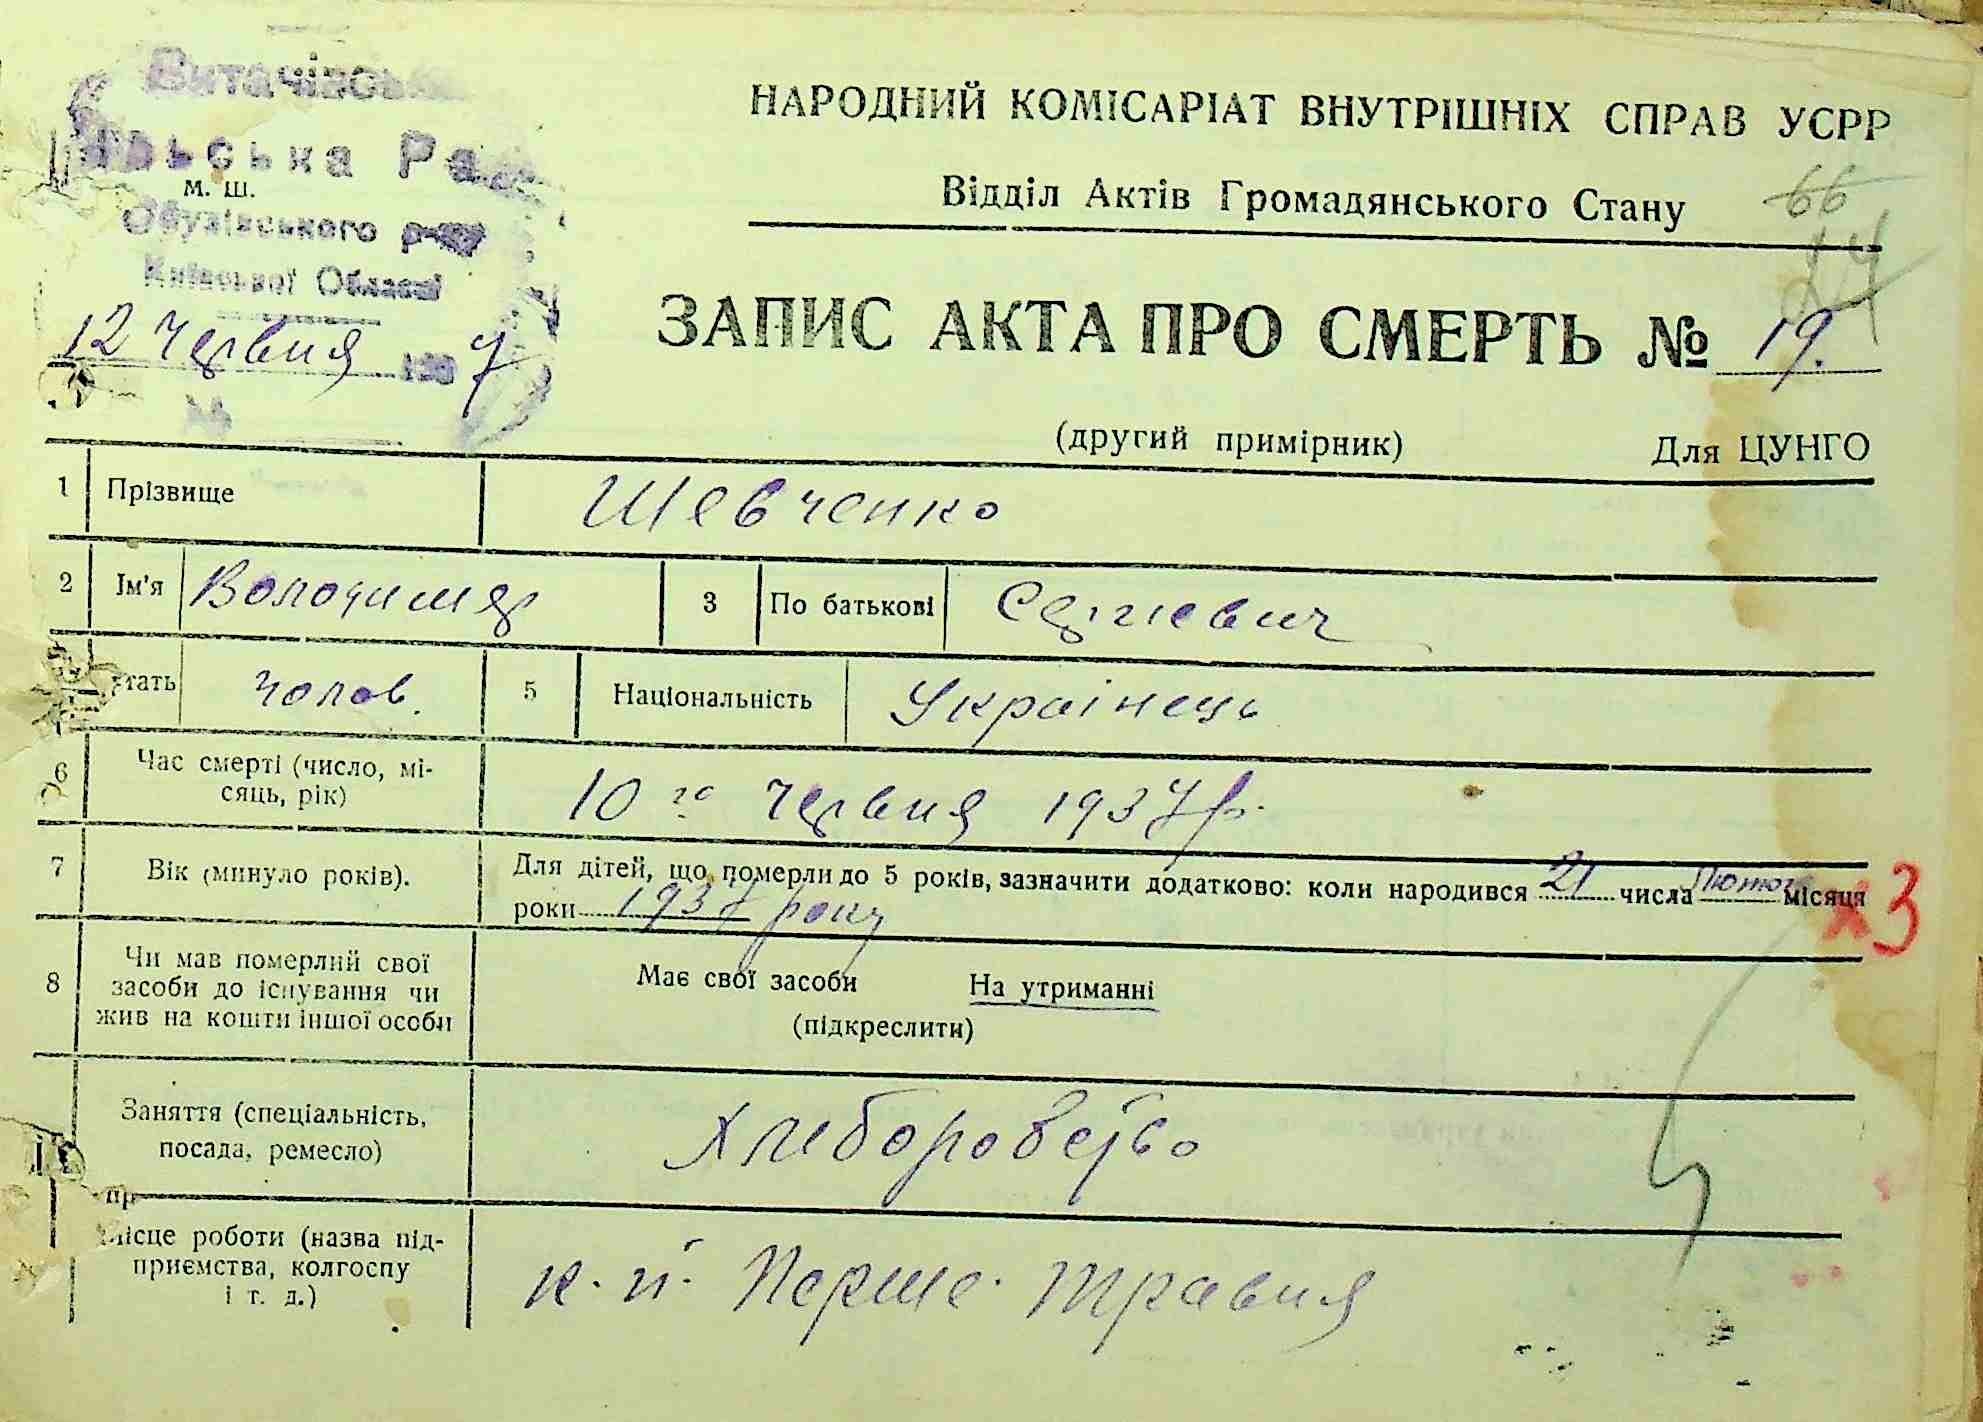 Витачівська
Сільська Рада
м. ш.
Обухівського р-ну
Київської Області
12 Червня 1937
№
НАРОДНИЙ КОМІСАРІАТ ВНУТРІШНІХ СПРАВ УСРР
Відділ Актів Громадянського Стану
66
ЗАПИС АКТА ПРО СМЕРТЬ № 19.
(другий примірник) Для ЦУНГО
1 Прізвище Шевченко
2 Ім'я Володимир 3 По батькові Сергієвич
стать чолов. 5 Національність Українець
6 Час смерті (число, мі-
сяць, рік) 10 го Червня 1937 р.
7 Вік (минуло років). Для дітей, що померли до 5 років, зазначити додатково: коли народився 21 числа Лютого місяця
роки 1937 року
х3
8 Чи мав померлий свої
засоби до існування чи
жив на кошти іншої особи
Має свої засоби На утриманні
(підкреслити)
Заняття (спеціальність,
посада, ремесло) Хлиборобство
пр
Місце роботи (назва під-
приємства, колгоспу
і т. д.) к. й. Перше. травня